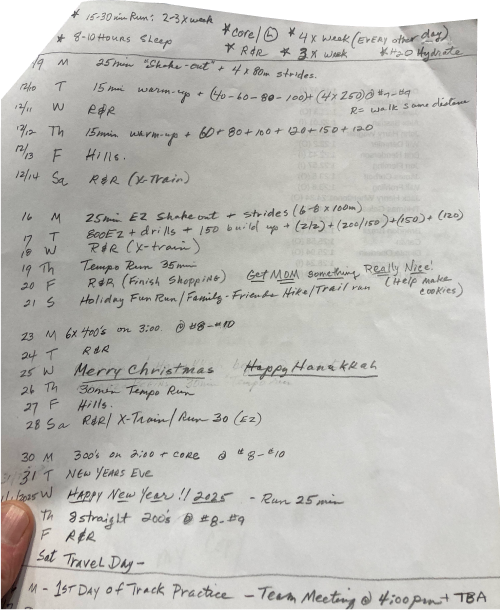 * 15-30 min Run: 2-3x week
* 8-10 Hours Sleep
* Core / (b) * 4x week (EVERY other day)
* R&R * 3x week * H2O Hydrate
/9 M 25 min "Shake-out" + 4x80m strides.
12/10 T 15 min warm-up + (40-60-80-100) + (4x250) @ #7-#9
R = walk same distance
12/11 W R&R
12/12 Th 15min warm-up + 60+80+100+120+150+120
12/13 F Hills.
12/14 Sa R&R (X-Train)
16 M 25min EZ Shakeout + strides (6-8 x 100m)
17 T 800EZ + drills + 150 build up + (2/2) + (200/150) + (150) + (120)
18 W R&R (X-train)
19 Th Tempo Run 35min
20 F R&R (Finish Shopping) Get MOM something Really Nice!
(Help make cookies)
21 S Holiday Fun Run / Family-Friends Hike / Trail run
23 M 6x400's on 3:00 @ #8-#10
24 T R&R
25 W Merry Christmas Happy Hanakkah
26 Th 30min Tempo Run
27 F Hills.
28 Sa R&R / X-Train / Run 30 (EZ)
30 M 300's on 2:00 + core @ #8-#10
31 T NEW YEARS EVE
1/1/2025 W HAPPY New Year!! 2025 - Run 25min
Th 8 straight 200's @ #8-#9
F R&R
Sat Travel Day -
M - 1ST DAY of Track Practice - Team Meeting @ 4:00pm + TBA